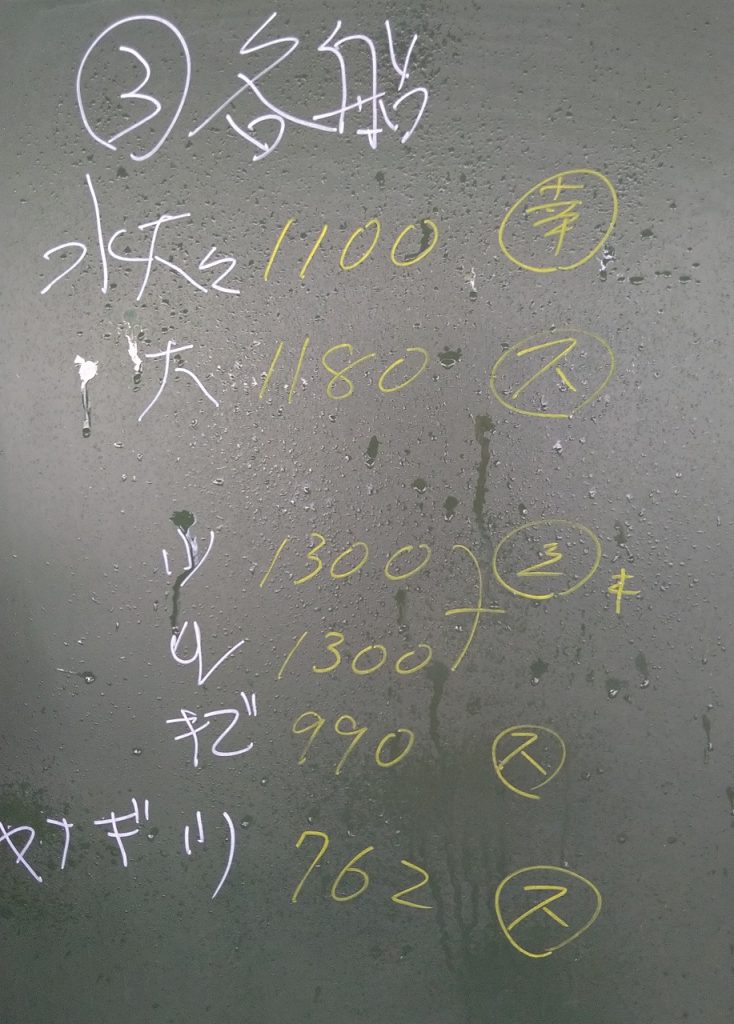 ③各船
水大々 1100 幸
大 1180 ス
小 1300
1300
キビ 990 ス
ヤナギ 小 762 ス